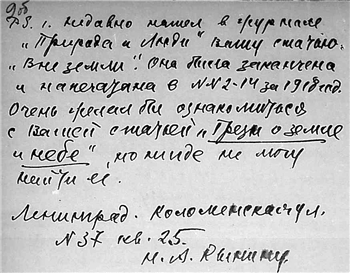 P.S. 1. недавно нашел в журнале
„Природа и Люди" Вашу статью.
„Вне земли". Она была закончена
и напечатана в NN 2-14 за 1918 год.
Очень желал бы ознакомиться
с Вашей статьей „Грезы о земле
и небе", но нигде не могу
найти ее.
Ленинград. Коломенская ул.
N 37 кв. 25.
Н. А. Рынину